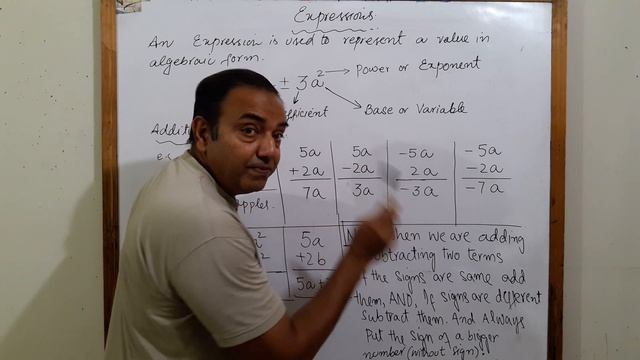 Expressions
An Expression is used to represent a value in
algebraic form.
± 3a² → Power or Exponent
Base or Variable
5a 5a -5a -5a
+2a -2a 2a -2a
7a 3a -3a -7a
5a
+2b
5a+
when we are adding
subtracting two terms
the signs are same add
them, AND, If signs are different
subtract them. And Always
Put the sign of a bigger
number (without sign)